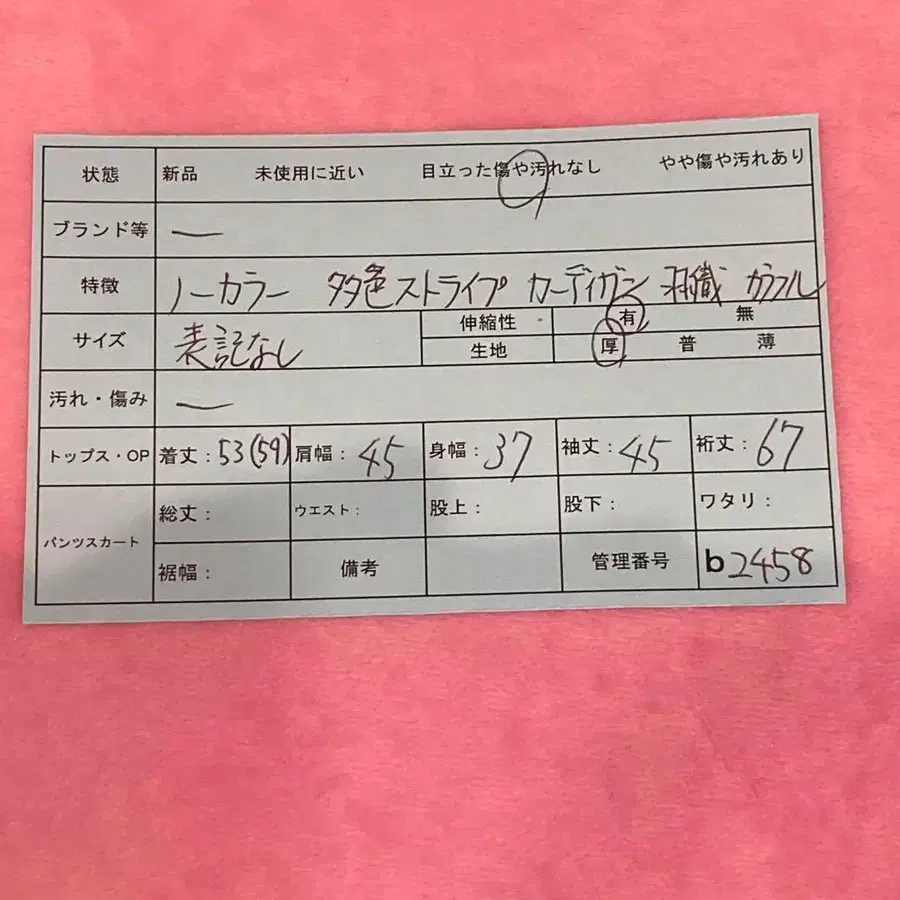 状態 新品 未使用に近い 目立った傷や汚れなし やや傷や汚れあり
ブランド等 ー
特徴 ノーカラー 多色ストライプ カーディガン 羽織 カラフル
サイズ 表記なし 伸縮性 有 無
生地 厚 普 薄
汚れ・傷み ー
トップス・OP 着丈：53(59) 肩幅：45 身幅：37 袖丈：45 裄丈：67
パンツスカート 総丈： ウエスト： 股上： 股下： ワタリ：
裾幅： 備考 管理番号 b2458